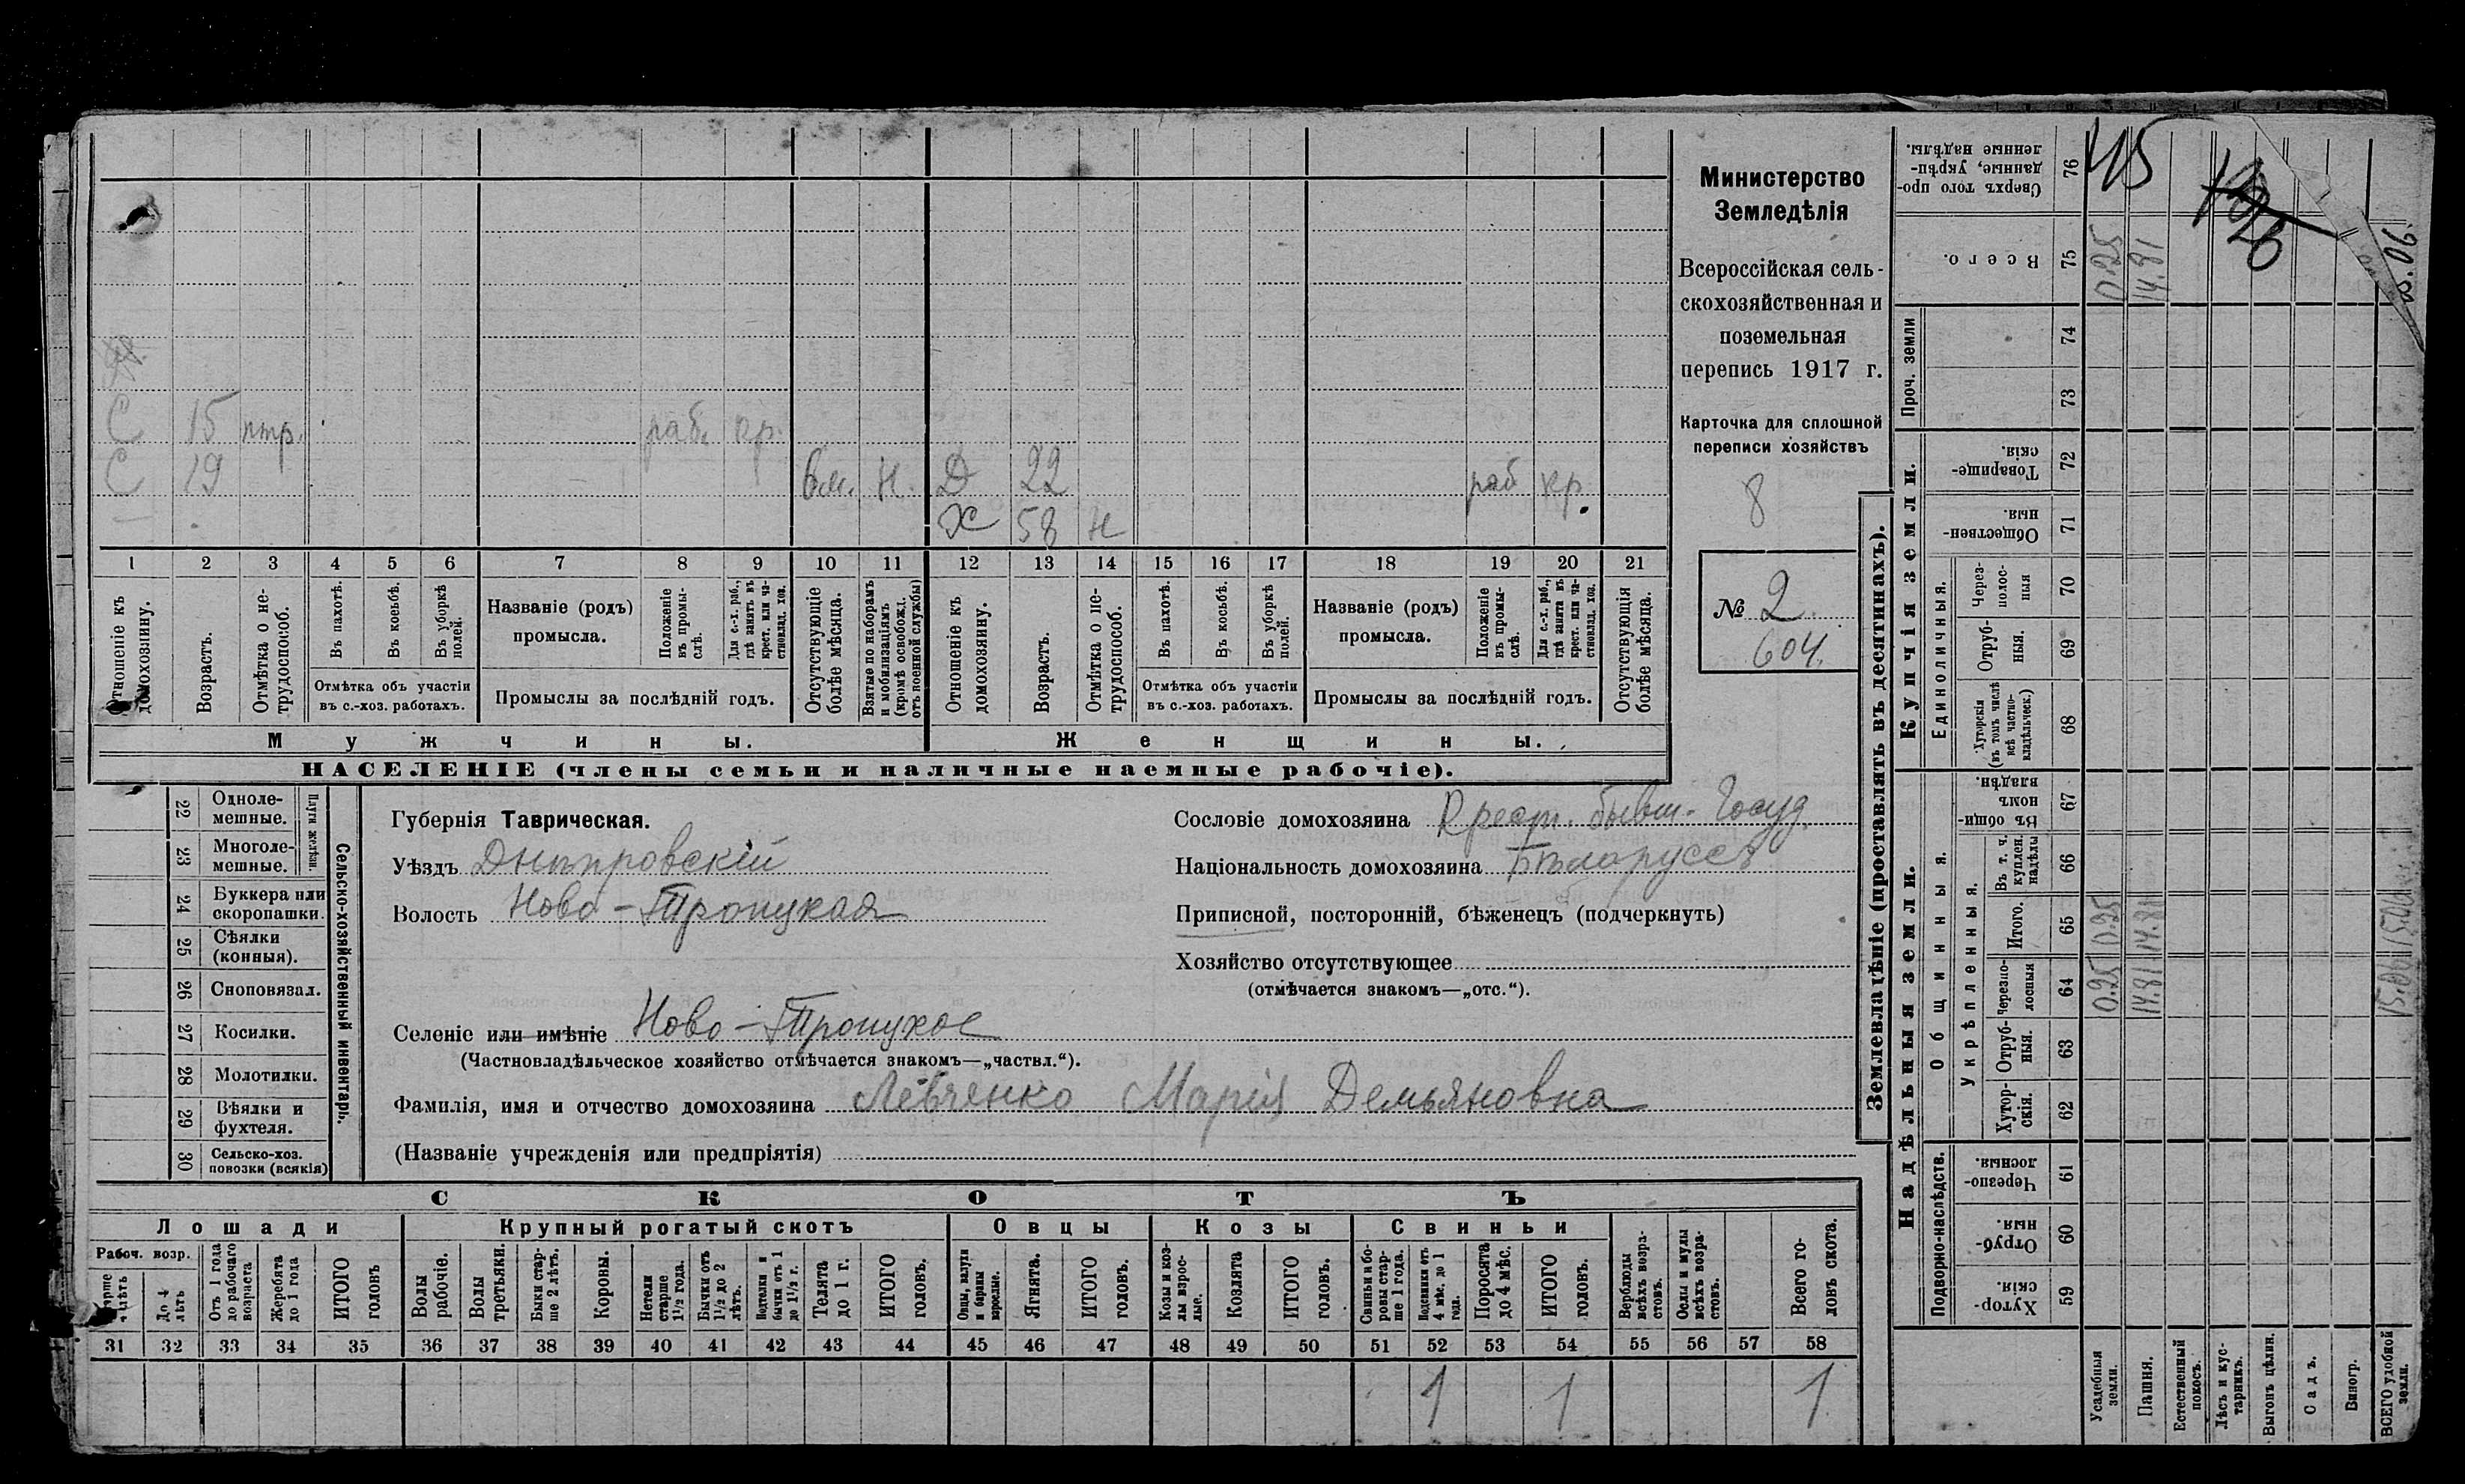 Министерство
Земледѣлія
Всероссійская сель-
скохозяйственная и
поземельная
перепись 1917 г.
Карточка для сплошной
переписи хозяйствъ
8
№ 2.
604.
С 15 нтр. раб. кр.
С 19 6 м. Н. Д 22 раб кр.
Х 58 н
1 2 3 4 5 6 7 8 9 10 11 12 13 14 15 16 17 18 19 20 21
Отношеніе къ домохозяину.
Возрастъ.
Отмѣтка о не-трудоспособ.
Въ пахотѣ.
Въ косьбѣ.
Въ уборкѣ полей.
Отмѣтка объ участіи
въ с.-хоз. работахъ.
Названіе (родъ)
промысла.
Положеніе въ промы-слѣ.
Для с.-х. раб., гдѣ занятъ въ крест. или ча-стновлад. хоз.
Промыслы за послѣдній годъ.
Отсутствующіе болѣе мѣсяца.
Взятые по наборамъ и мобилизаціямъ (кромѣ освобожд. отъ военной службы)
Отношеніе къ домохозяину.
Возрастъ.
Отмѣтка о не-трудоспособ.
Въ пахотѣ.
Въ косьбѣ.
Въ уборкѣ полей.
Отмѣтка объ участіи
въ с.-хоз. работахъ.
Названіе (родъ)
промысла.
Положеніе въ промы-слѣ.
Для с.-х. раб., гдѣ занята въ крест. или ча-стновлад. хоз.
Промыслы за послѣдній годъ.
Отсутствующія болѣе мѣсяца.
Мужчины. Женщины.
НАСЕЛЕНІЕ (члены семьи и наличные наемные рабочіе).
22 Одноле-мешные.
23 Многоле-мешные.
Плуги желѣзн.
24 Буккера или скоропашки.
25 Сѣялки (конныя).
26 Сноповязал.
27 Косилки.
28 Молотилки.
29 Вѣялки и фухтеля.
30 Сельско-хоз. повозки (всякія)
Сельско-хозяйственный инвентарь.
Губернія Таврическая.
Уѣздъ Днѣпровскій
Волость Ново-Троицкая
Селеніе или имѣніе Ново-Троицкое
(Частновладѣльческое хозяйство отмѣчается знакомъ—„частвл.“).
Фамилія, имя и отчество домохозяина Левченко Марія Демьяновна
(Названіе учрежденія или предпріятія)
Сословіе домохозяина Крест. бывш. Госуд.
Національность домохозяина Бѣларуссъ
Приписной, посторонній, бѣженецъ (подчеркнуть)
Хозяйство отсутствующее
(отмѣчается знакомъ—„отс.“).
СКОТЪ
Лошади Крупный рогатый скотъ Овцы Козы Свиньи
Рабоч. возр.
До 4 лѣтъ
Отъ 1 года до рабочаго возраста
Жеребята до 1 года
ИТОГО головъ
Волы рабочіе.
Волы третьяки.
Быки стар-ше 2 лѣтъ.
Коровы.
Нетели старше 1½ года.
Бычки отъ 1½ до 2 лѣтъ.
Нетелки и бычки отъ 1 до 1½ г.
Телята до 1 г.
ИТОГО головъ.
Овцы, валухи и бараны взрослые.
Ягнята.
ИТОГО головъ.
Козы и коз-лы взрос-лые.
Козлята
ИТОГО головъ.
Свиньи и бо-ровы стар-ше 1 года.
Подсвинки отъ 4 мѣс. до 1 года.
Поросята до 4 мѣс.
ИТОГО головъ.
Верблюды всѣхъ возра-стовъ.
Ослы и мулы всѣхъ возра-стовъ.
Всего го-ловъ скота.
31 32 33 34 35 36 37 38 39 40 41 42 43 44 45 46 47 48 49 50 51 52 53 54 55 56 57 58
1 1 1
Землевладѣніе (проставлять въ десятинахъ).
Надѣльныя земли. Купчія земли. Проч. земли
Подворно-наслѣдств.
Общинныя.
Укрѣпленныя.
Единоличныя.
Хутор-скія. 59
Отруб-ныя. 60
Черезпо-лосныя. 61
Хутор-скія. 62
Отруб-ныя. 63
Черезпо-лосныя 64
Итого. 65
Въ т. ч. куплен. надѣлы 66
Въ общи-номъ владѣн. 67
Хуторскія (въ томъ числѣ всѣ частно-владѣльческ.) 68
Отруб-ныя. 69
Через-полос-ныя 70
Обществен-ныя. 71
Товарище-скія. 72
73
74
Всего. 75
Сверхъ того про-данные, укрѣп-ленные надѣлы. 76
Усадебныя земли. 0.25 0.25 0.25
Пашня. 14.81 14.81 14.81
Естественный покосъ.
Лѣсъ и кус-тарникъ.
Выгонъ цѣлин.
Садъ.
Виногр.
ВСЕГО удобной земли. 15.06 15.06
45